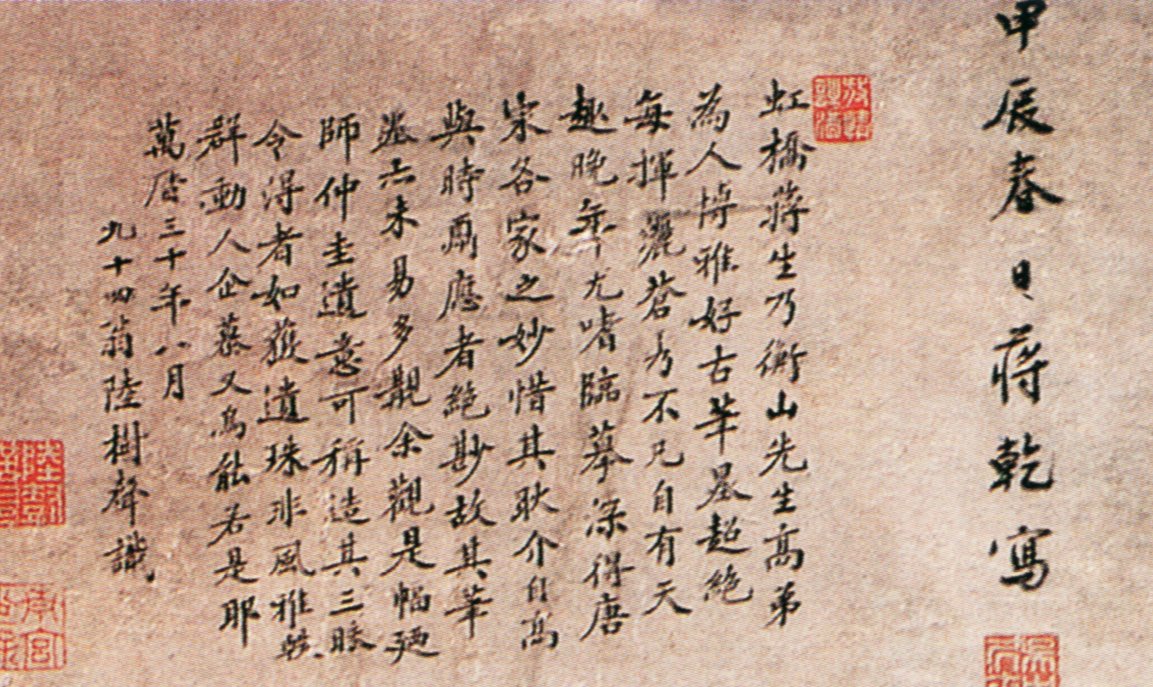 甲辰春日蔣乾寫
虹橋蔣生乃衡山先生高弟
為人博雅好古筆墨超絶
每揮灑蒼秀不凡自有天
趣晚年尤嗜臨摹深得唐
宋各家之妙惜其耿介自高
與時鼎應者絶尠故其筆
蹟亦未易多覯余觀是幅廼
師仲圭遺意可稱造其三昧
令得者如獲遺珠非風雅
群動人企慕又烏能若是耶
萬曆三十年八月
九十四翁陸樹聲識